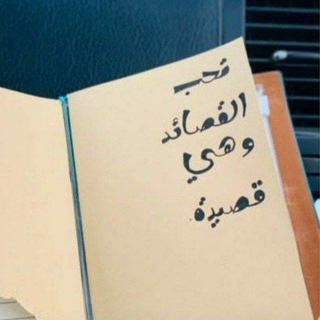 تحب
القصائد
وهي
قصيدة.